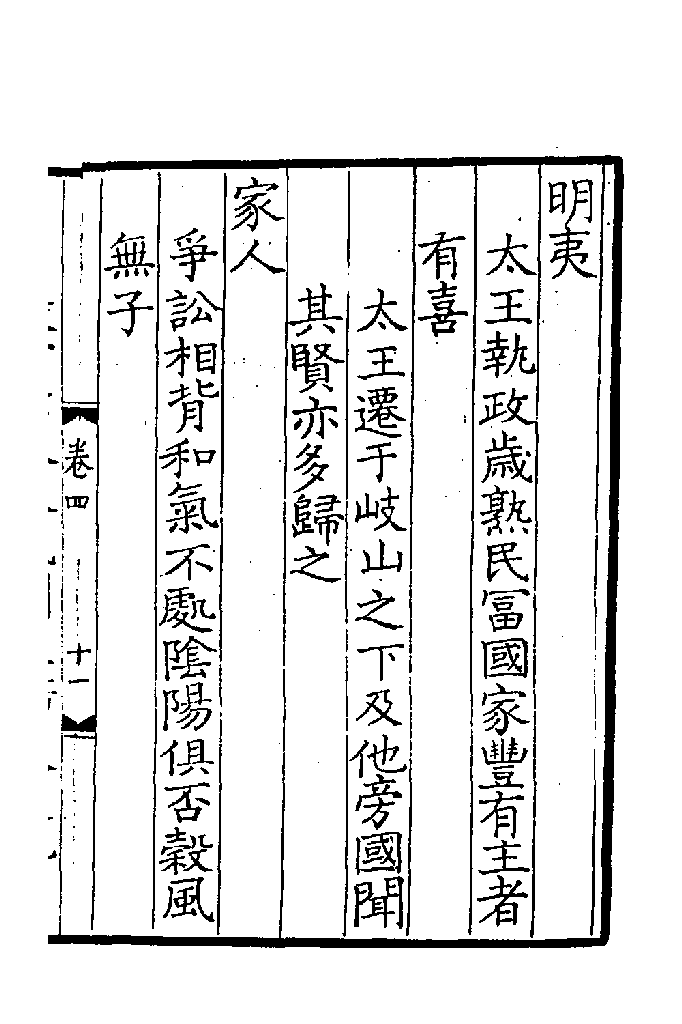 明夷
太王執政歲熟民冨國家豐有主者
有喜
太王遷于岐山之下及他旁國聞
其賢亦多歸之
家人
爭訟相背和氣不處隂陽俱否穀風
無子
卷四
十一